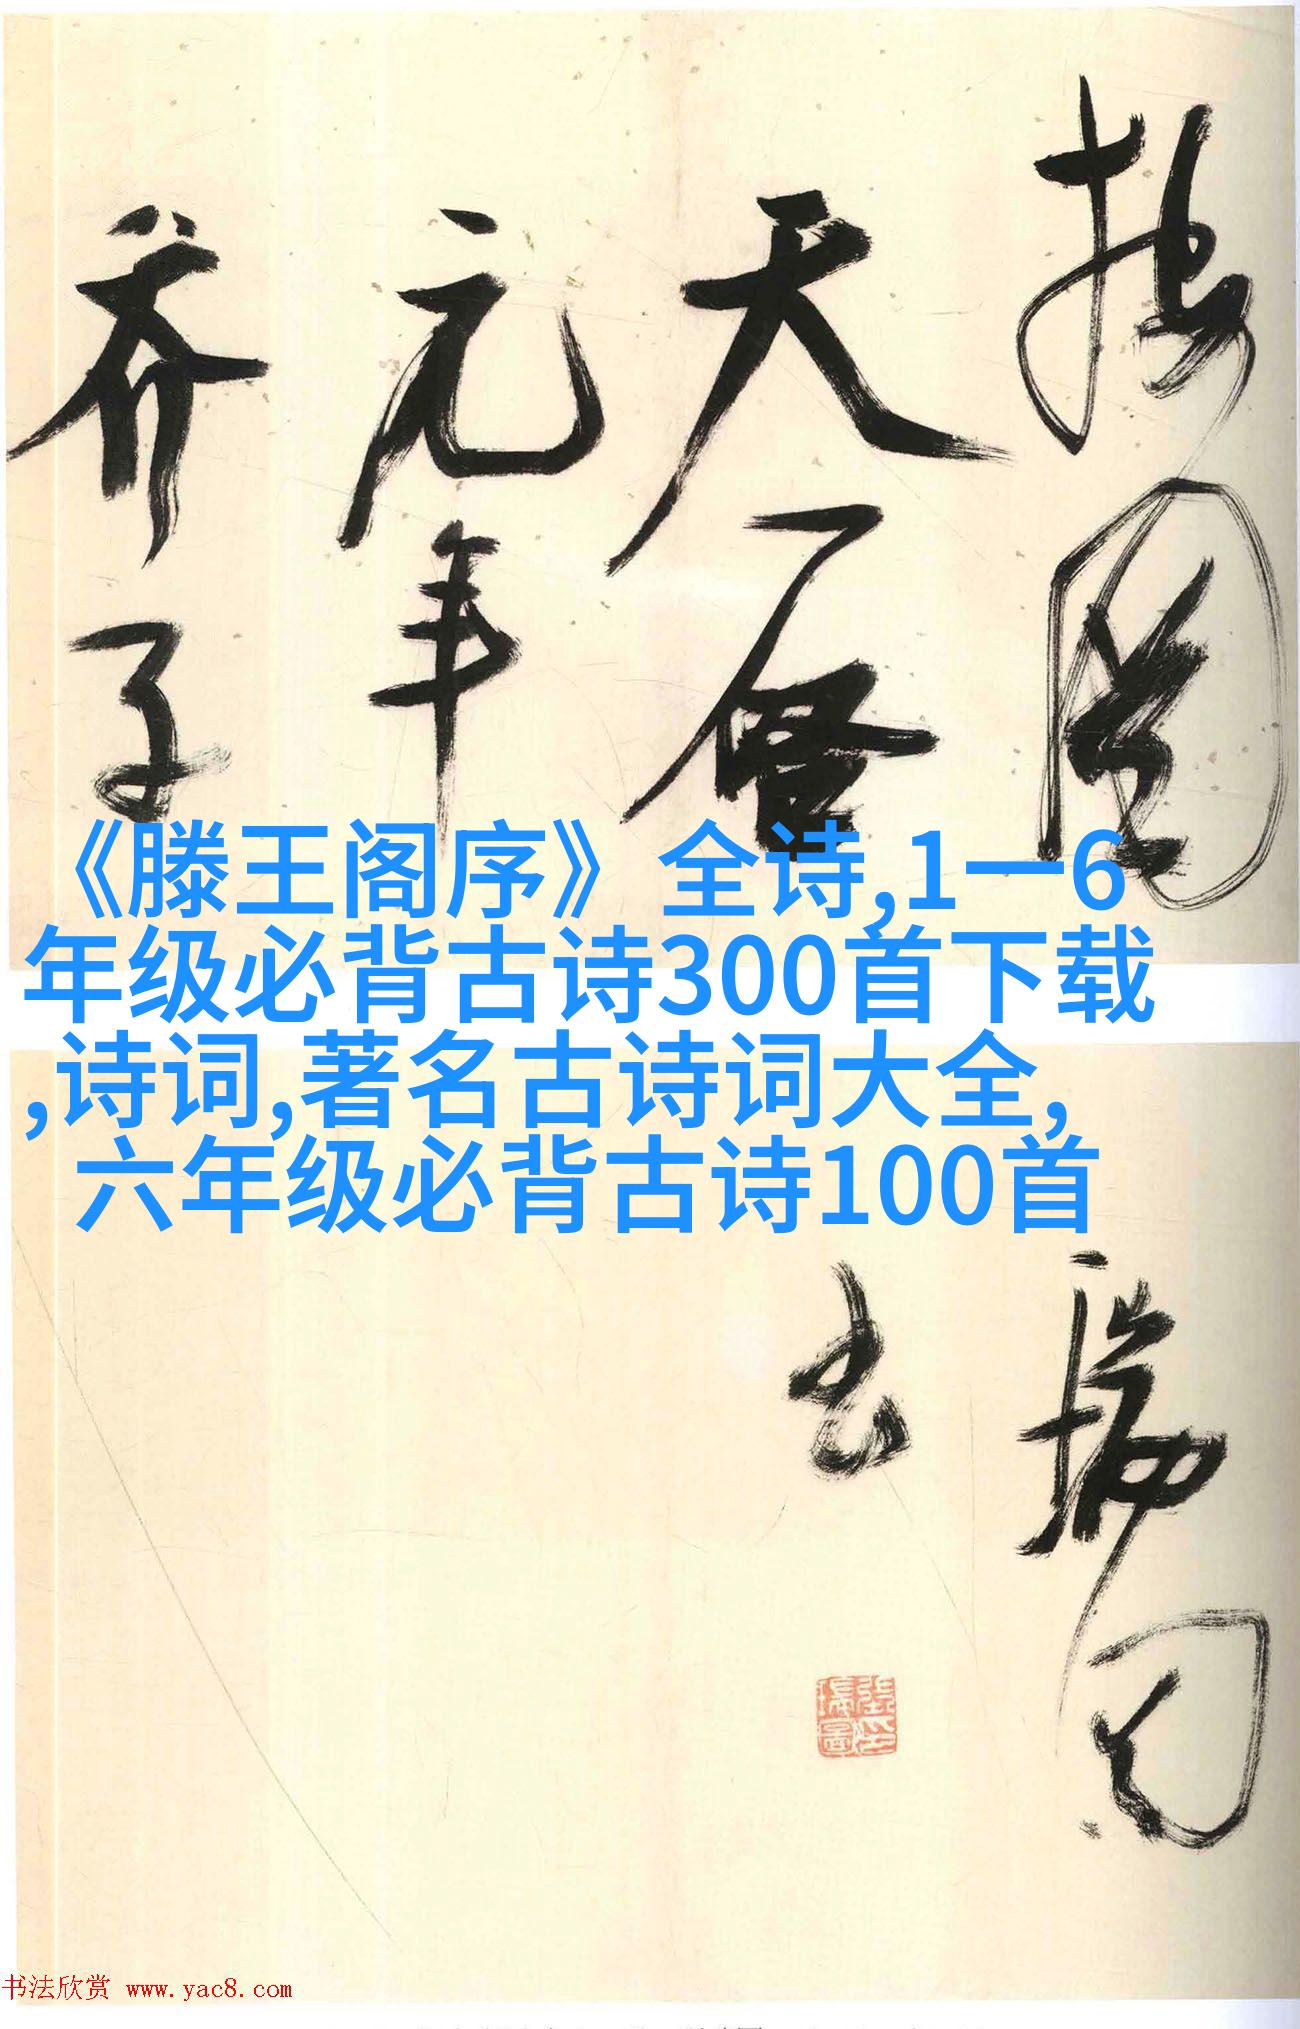 天啓
元年
《滕王阁序》全诗,1一6
年级必背古诗300首下载
,诗词,著名古诗词大全,
六年级必背古诗100首
瑞圖
書
书法欣赏 www.yac8.com